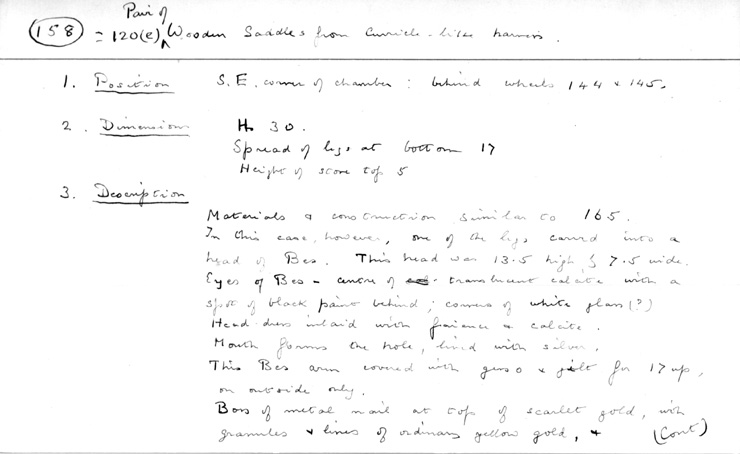 Pair of
158 = 120(e) Wooden Saddles from Curricle-like harness.
1. Position S.E. corner of chamber: behind wheels 144 & 145.
2. Dimensions H. 30.
Spread of legs at bottom 17
Height of stone top 5
3. Description
Materials & construction similar to 165.
In this case, however, one of the legs carved into a
head of Bes. This head was 13.5 high & 7.5 wide.
Eyes of Bes - centre of translucent calcite with a
spot of black paint behind; corners of white glass(?)
Head-dress inlaid with faience & calcite.
Mouth forms the hole, lined with silver.
This Bes arm covered with gesso & gilt for 17 up,
on outside only.
Boss of metal nail at top of scarlet gold, with
granules & lines of ordinary yellow gold, & (Cont)